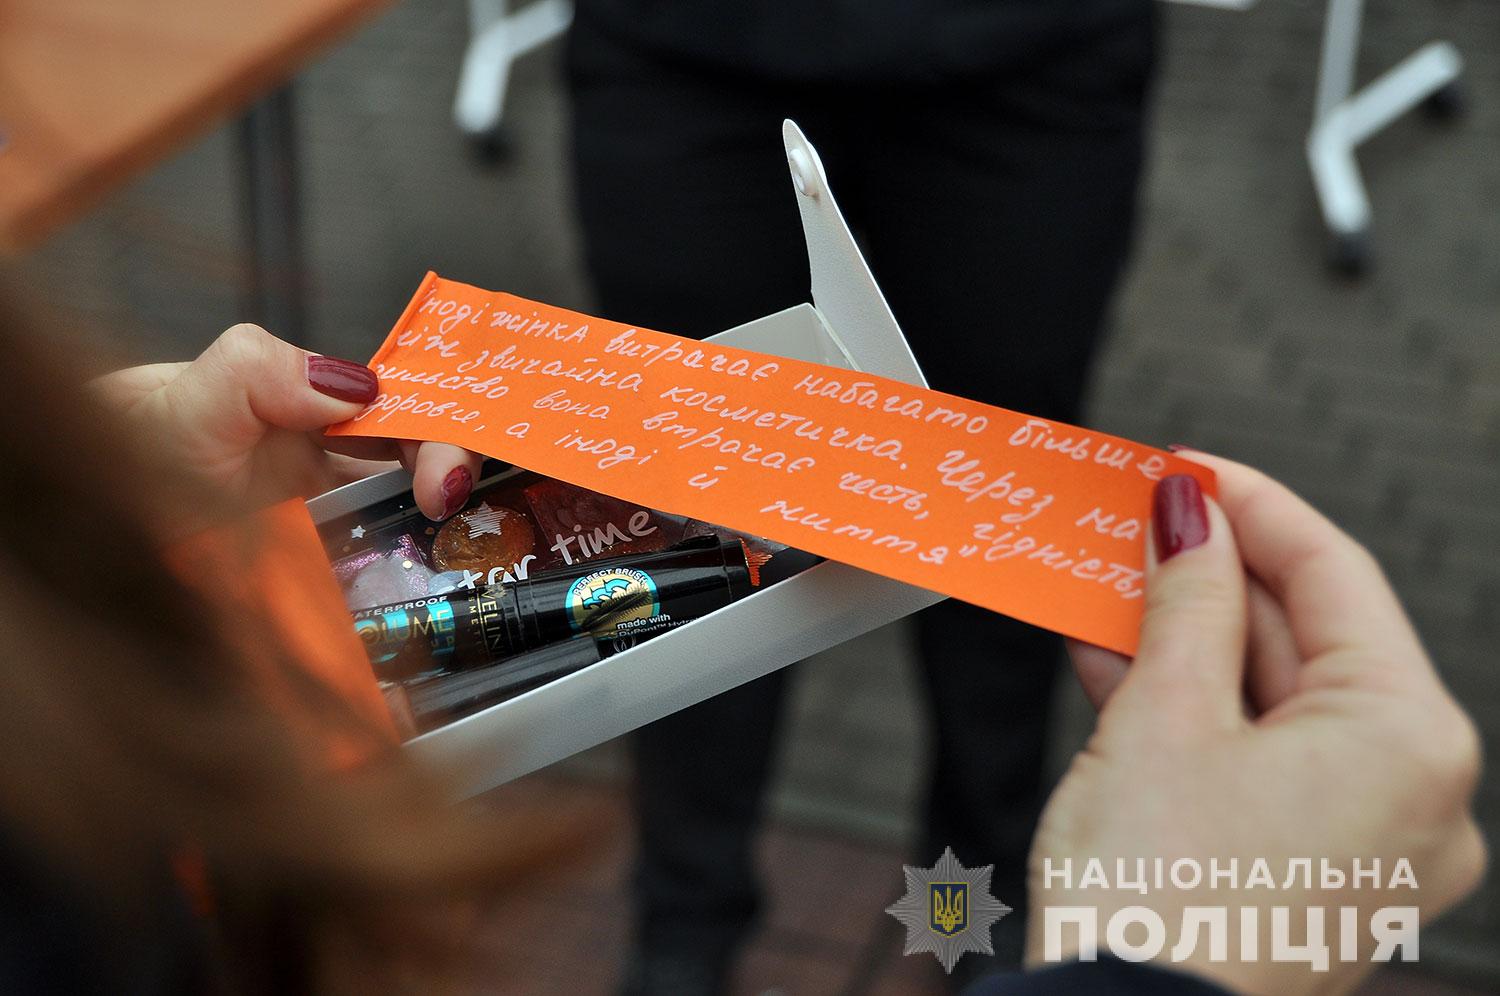 іноді жінка витрачає набагато більше
ніж звичайна косметичка. Через на
сильство вона втрачає честь, гідність,
здоровя, а іноді й життя"
star time
WATERPROOF
VOLUME
EVELINE
PERFECT BRUSH
made with
DuPont™
НАЦІОНАЛЬНА
ПОЛІЦІЯ